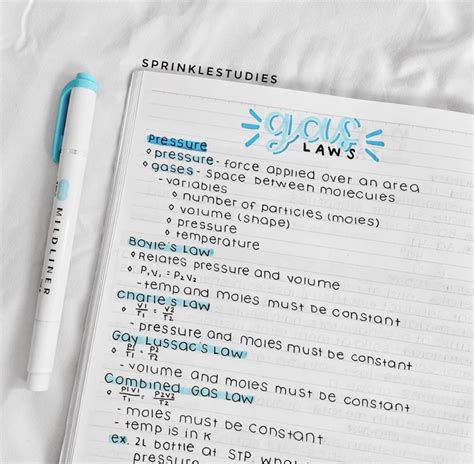 SPRINKLESTUDIES
gas
LAWS
Pressure
◇ pressure - force applied over an area
◇ gases - space between molecules
- variables
◇ number of particles (moles)
◇ volume (shape)
◇ pressure
◇ temperature
Boyle's Law
◇ Relates pressure and volume
◇ P₁V₁ = P₂V₂
- temp and moles must be constant
Charle's Law
◇ V1/T1 = V2/T2
- pressure and moles must be constant
Gay Lussac's Law
◇ P1/T1 = P2/T2
- volume and moles must be constant
Combined Gas Law
◇ P1V1/T1 = P2V2/T2
- moles must be constant
- temp is in K
ex. 2L bottle at STP, what
pressure
MILDLINER